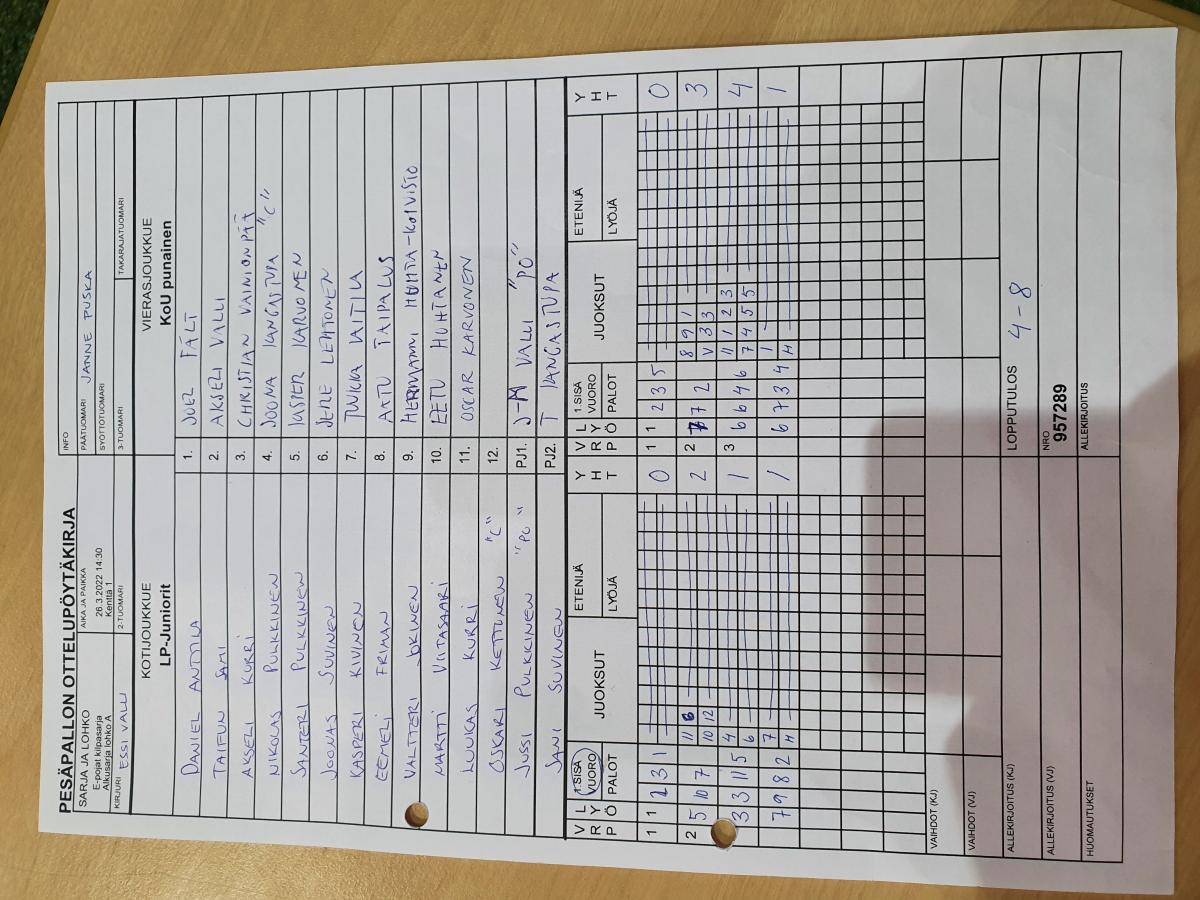 PESÄPALLON OTTELUPÖYTÄKIRJA
SARJA JA LOHKO
E-pojat kilpasarja
Alkusarja lohko A
AIKA JA PAIKKA
26.3.2022 14:30
Kenttä 1
INFO
PÄÄTUOMARI JANNE PUSKA
SYÖTTÖTUOMARI
KIRJURI ESSI VALLI
2-TUOMARI
3-TUOMARI
TAKARAJATUOMARI
KOTIJOUKKUE
LP-Juniorit
VIERASJOUKKUE
KoU punainen
DANIEL ANTTILA 1. JOEL FÄLT
TAIFUN SAMI 2. AKSELI VALLI
AKSELI KURRI 3. CHRISTIAN VAINIONPÄÄ
NIKOLAS PULKKINEN 4. JOONA KANGASTUPA "C"
SANTERI PULKKINEN 5. KASPER KARVONEN
JOONAS SUVINEN 6. JERE LEHTONEN
KASPERI KIVINEN 7. TUUKKA LAITILA
EEMELI FRIMAN 8. AATU TAIPALUS
VALTTERI JOKINEN 9. HERMANNI HUHTA-KOIVISTO
MARTTI VIITASAARI 10. EETU HUHTANEN
LUUKAS KURRI 11. OSCAR KARVONEN
OSKARI KETTUNEN "C" 12.
JUSSI PULKKINEN "PO" PJ1. J-M VALLI "PO"
JANI SUVINEN PJ2. T KANGASTUPA
V R P L Y Ö 1.SISÄ VUORO PALOT JUOKSUT ETENIJÄ LYÖJÄ Y H T V R P L Y Ö 1.SISÄ VUORO PALOT JUOKSUT ETENIJÄ LYÖJÄ Y H T
1 1 2 3 1 0 1 1 2 3 5 0
2 5 10 7 11 6 2 2 7 7 2 8 9 1 3
10 12 V 3 3
3 3 11 5 4 1 3 6 6 4 6 11 1 2 3 4
6 7 4 5 5
7 9 8 2 7 1 6 7 3 4 1 1
H H
VAIHDOT (KJ)
VAIHDOT (VJ)
ALLEKIRJOITUS (KJ) LOPPUTULOS 4-8
ALLEKIRJOITUS (VJ) NRO
957289
HUOMAUTUKSET ALLEKIRJOITUS